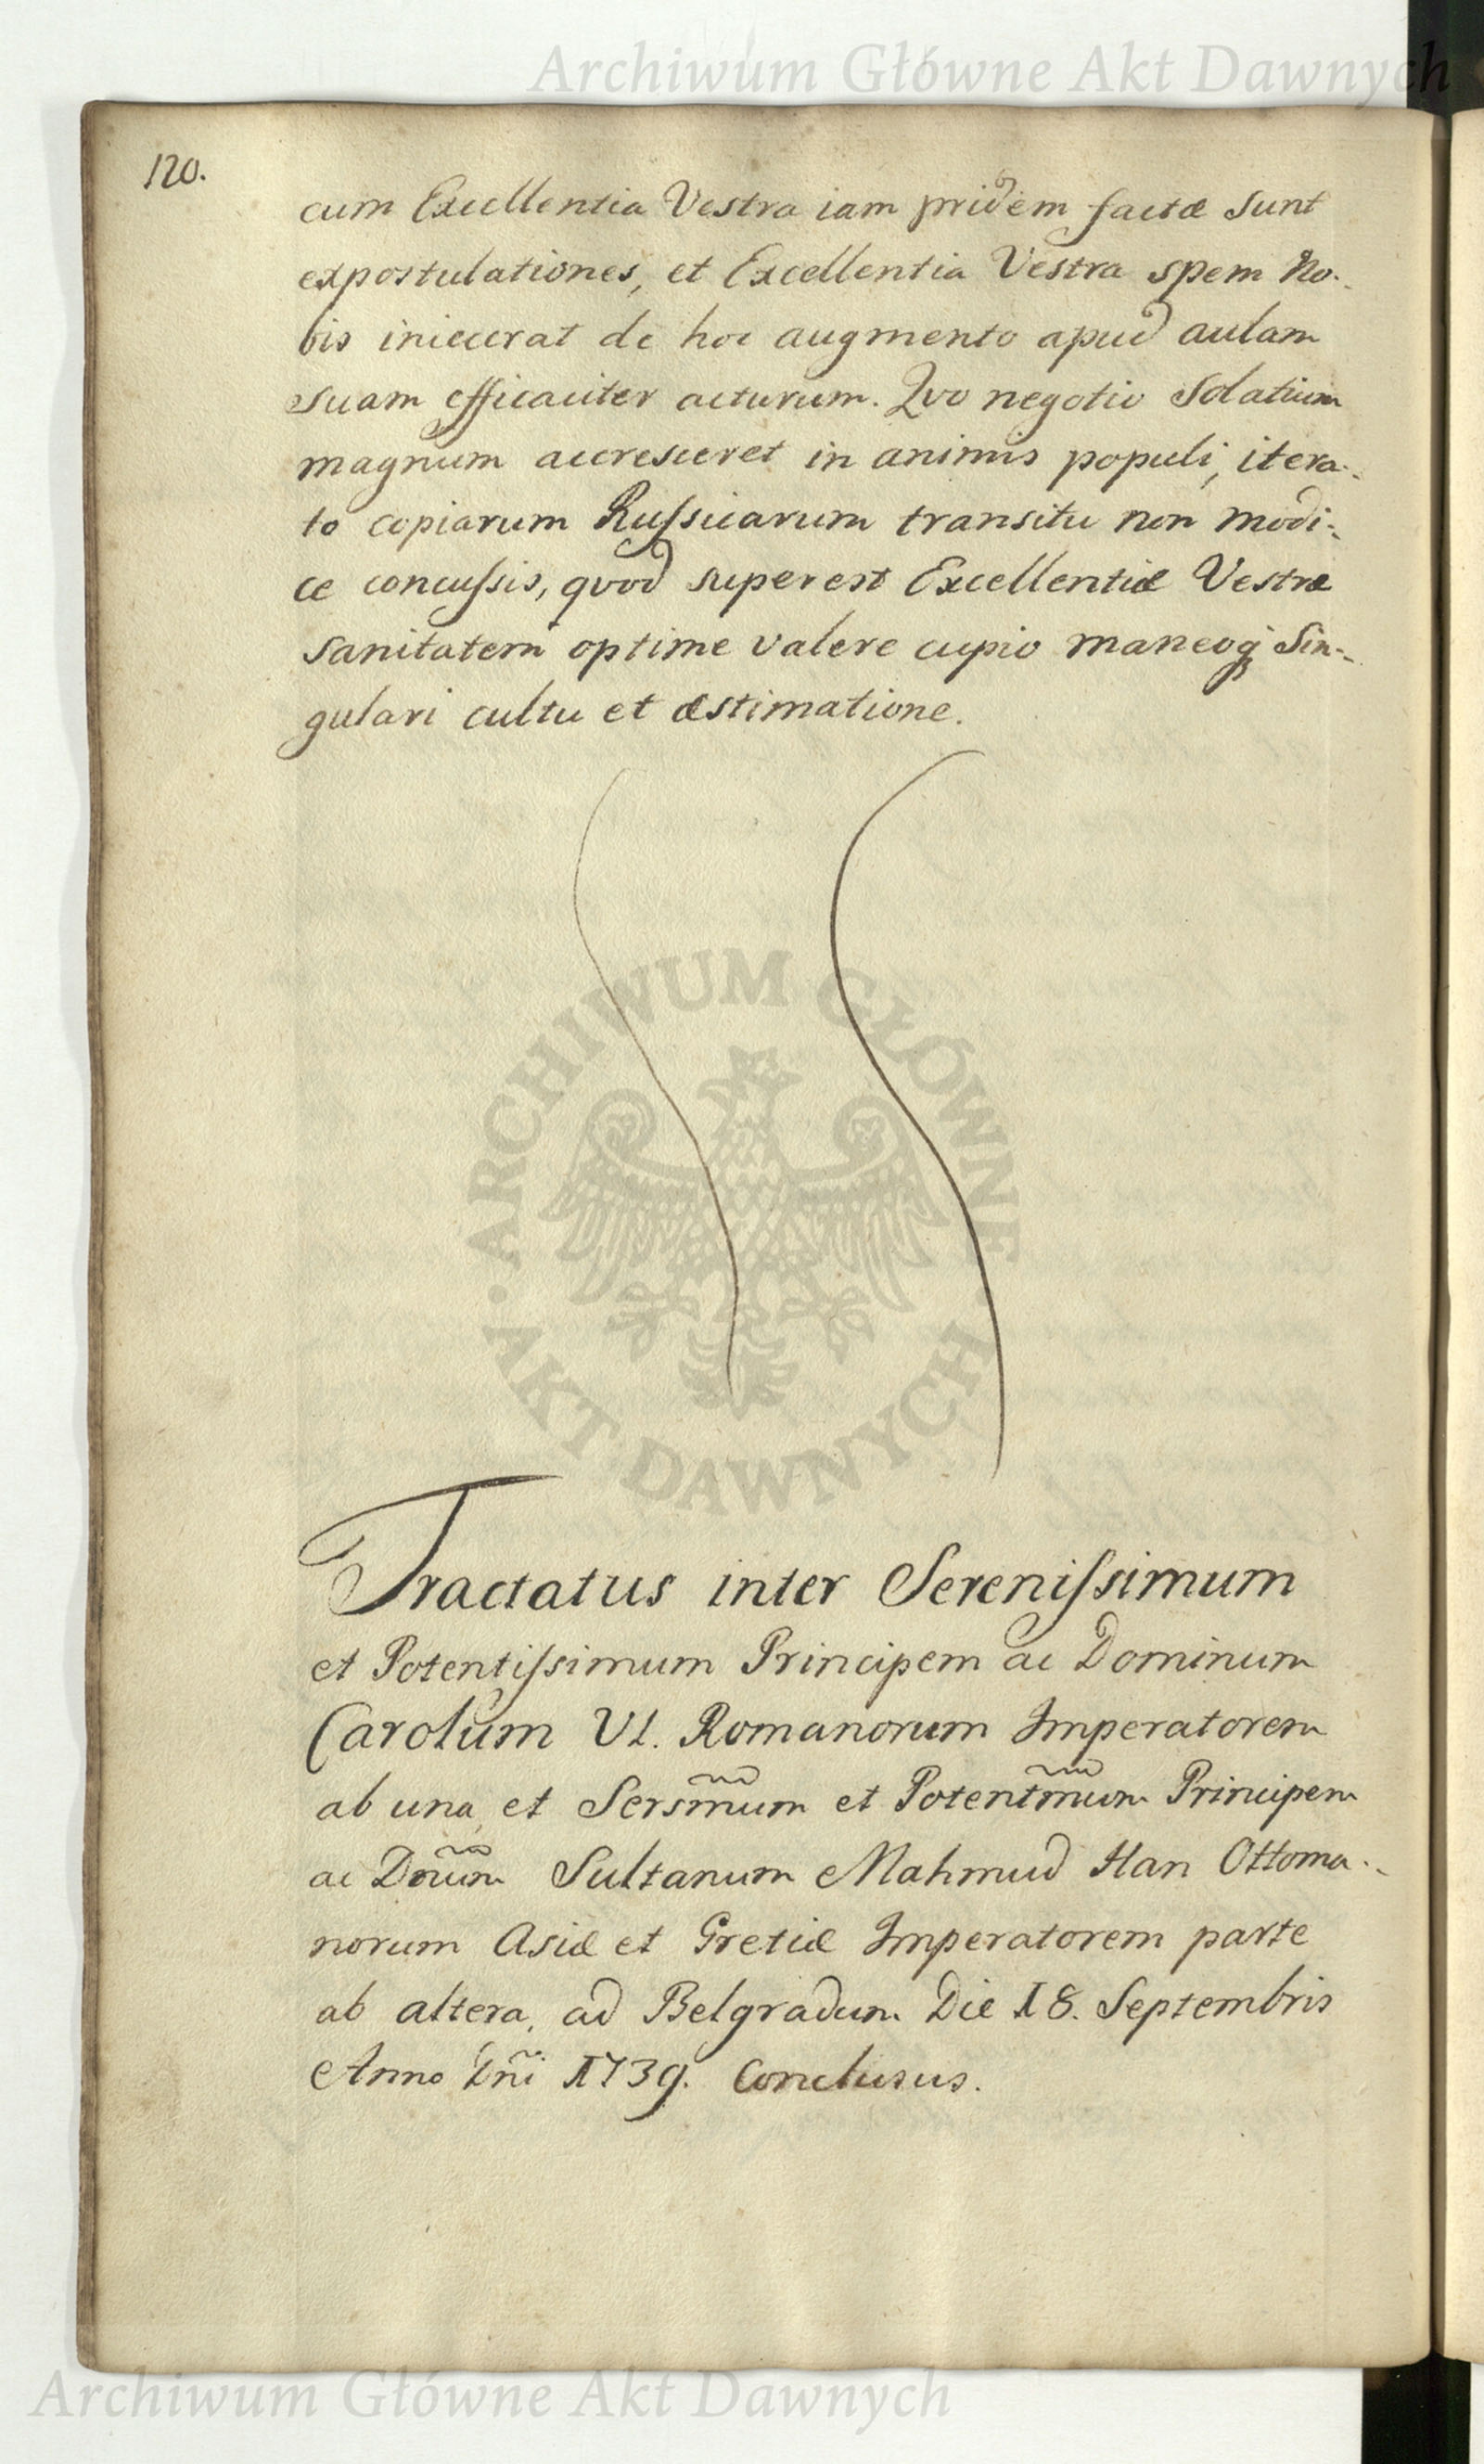 Archiwum Główne Akt Dawnych
120.
cum Excellentia Vestra iam pridem factæ sunt
expostulationes, et Excellentia Vestra spem No-
bis iniecerat de hoc augmento apud aulam
suam efficaciter acturum. Qvo negotio Solatium
magnum accresceret in animis populi, itera-
to copiarum Ruſsicarum transitu non modi-
ce concuſsis, qvod superest Excellentiæ Vestræ
sanitatem optime valere cupio maneoq; Sin-
gulari cultu et æstimatione.
ARCHIWUM GŁÓWNE · AKT DAWNYCH ·
Tractatus inter Sereniſsimum
et Potentiſsimum Principem ac Dominum
Carolum VI. Romanorum Imperatorem
ab una, et Sersm̃um et Potentm̃um Principem
ac Dn̄um Sultanum Mahmud Han Ottoma-
norum Asiæ et Gretiæ Imperatorem parte
ab altera, ad Belgradum Die 18. Septembris
Anno Dn̄i 1739. Conclusus.
Archiwum Główne Akt Dawnych